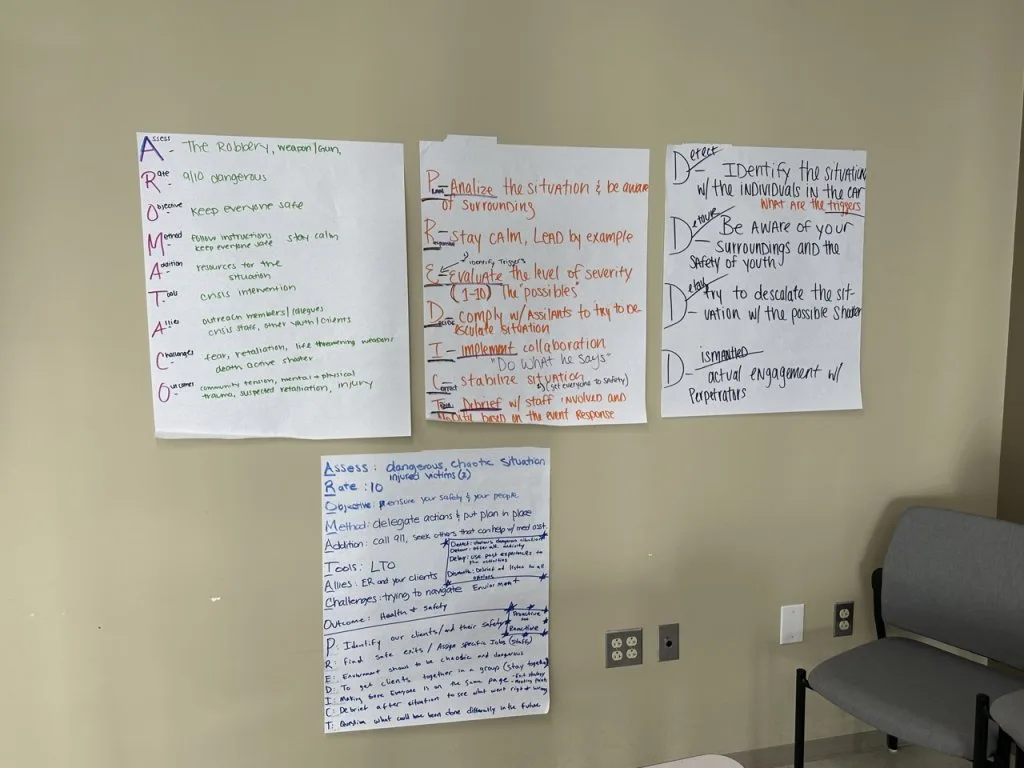 Assess - The Robbery, weapon/Gun,
Rate - 9/10 dangerous
Objective - Keep everyone safe
Method - follow instructions stay calm
keep everyone safe
Addition - resources for the
situation
Tools - Crisis intervention
Allies - outreach members/
crisis staff, other youth/clients
Challenges - fear, retaliation, life threatening weapons
death active shooter
Outcomes - community tension, mental + physical
trauma, suspected retaliation, injury
P - Analize the situation & be aware
of surrounding
R - STAY CALM, LEAD by example
Identify Triggers
E - Evaluate the level of severity
(1-10) The "possibles"
D - comply w/Assilants to try to de-
esculate situation
I - implement collaboration
"Do What he Says"
C - stabilize situation
(get everyone to safety)
T - Debrief w/ staff involved and
based on the event Response
Detect - Identify the situation
w/ the individuals in the car
What are the triggers
Detour - Be aware of your
surroundings and the
safety of youth
Delay - try to descalate the sit-
uation w/ the possible shooter
Dismantled - actual engagement w/
Perpetrators
Assess: dangerous, chaotic situation
injured victims (2)
Rate: 10
Objective: ensure your safety & your people
Method: delegate actions & put plan in place
Addition: call 911, seek others that can help w/ med asst.
Tools: LTO
Allies: ER and your clients
Challenges: trying to navigate Enviorment
Outcome: Health + safety
Detect: dangerous situation
Detour:
Delay: use past experiences to
Dismantle: Debrief and listen to all
opinions
Proactive
Reactive
P: Identify our clients/aid their safety
R: Find safe exits / Assign specific Jobs (staff)
E: Enviorment shows to be chaotic and dangerous
D: To get clients together in a group (stay together)
- Exit strategy
- Meeting Point
I: Making sure Everyone is on the same page
C: Debrief after situation to see what went right or wrong
T: Question what could have been done differently in the future